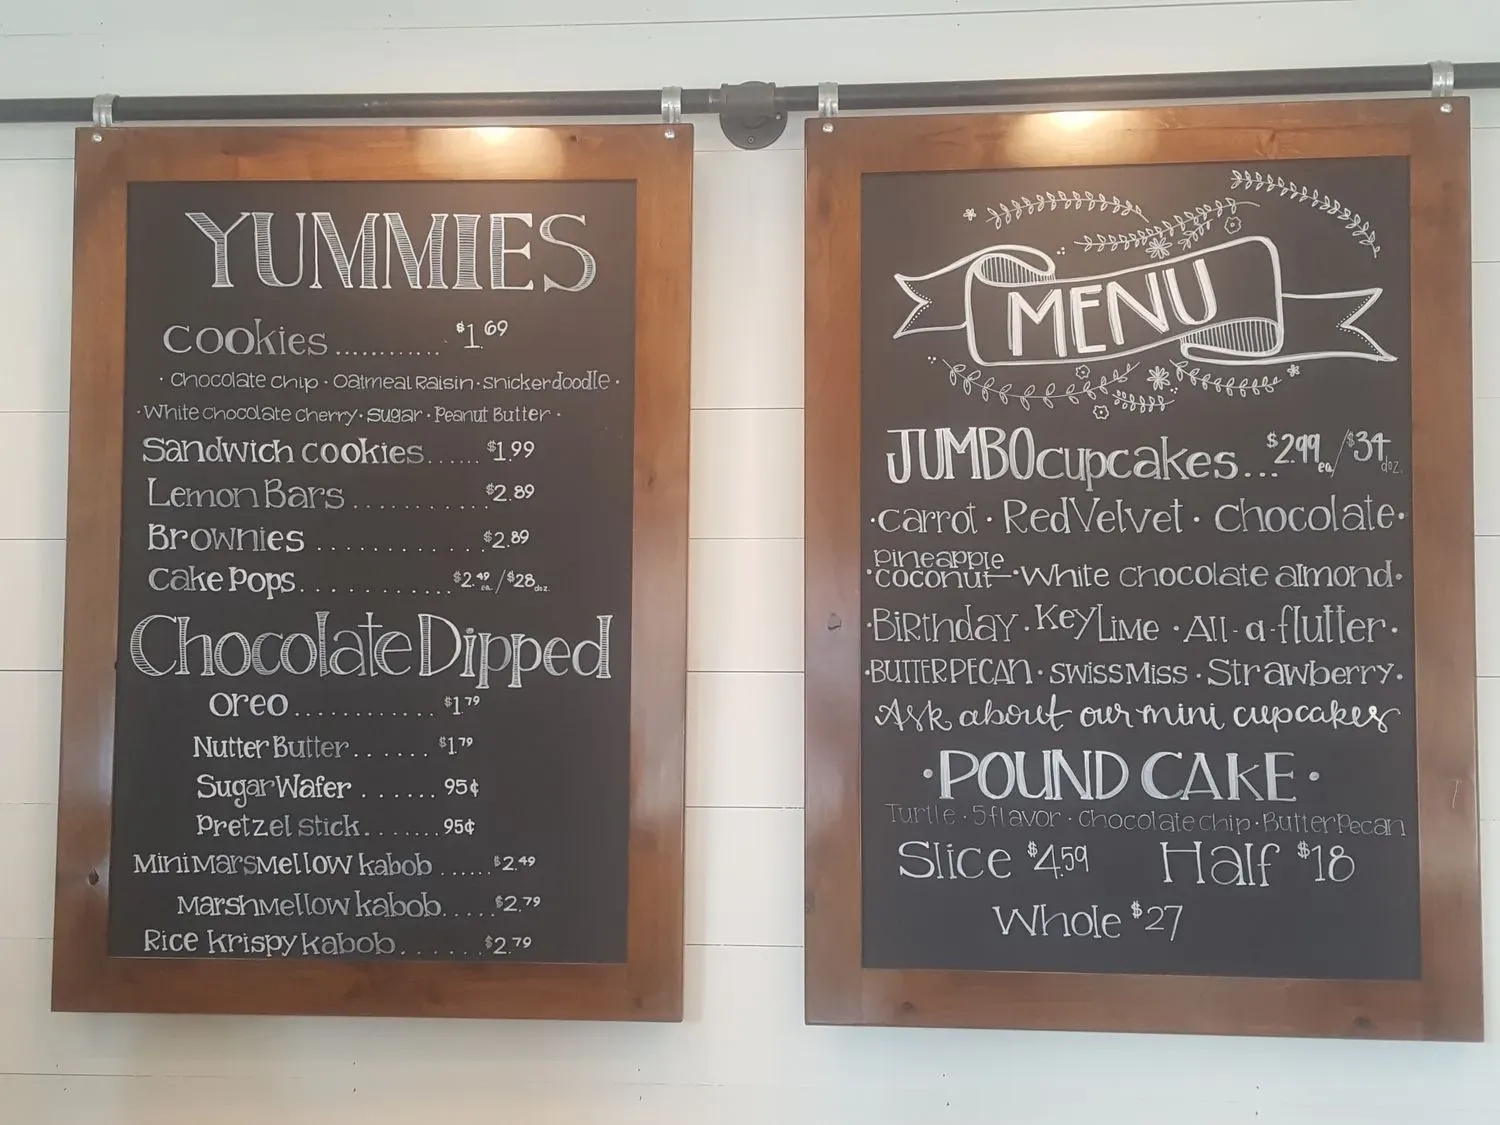 YUMMIES
Cookies............ $1.69
· Chocolate Chip · Oatmeal Raisin · Snickerdoodle ·
· White Chocolate Cherry · Sugar · Peanut Butter ·
Sandwich Cookies...... $1.99
Lemon Bars............ $2.89
Brownies............ $2.89
Cake Pops............ $2.49 ea. / $28 doz.
Chocolate Dipped
Oreo............ $1.79
Nutter Butter...... $1.79
Sugar Wafer...... 95¢
Pretzel Stick...... 95¢
Mini Marsmellow kabob...... $2.49
Marshmellow kabob..... $2.79
Rice Krispy kabob...... $2.79
MENU
JUMBO cupcakes... $2.99 ea. / $34 doz.
· Carrot · Red Velvet · Chocolate ·
· Pineapple coconut · White Chocolate almond ·
· Birthday · Key Lime · All-a-flutter ·
· BUTTER PECAN · SWISS MISS · Strawberry ·
Ask about our mini cupcakes
· POUND CAKE ·
Turtle · 5 flavor · Chocolate Chip · Butter Pecan
Slice $4.59 Half $18
Whole $27